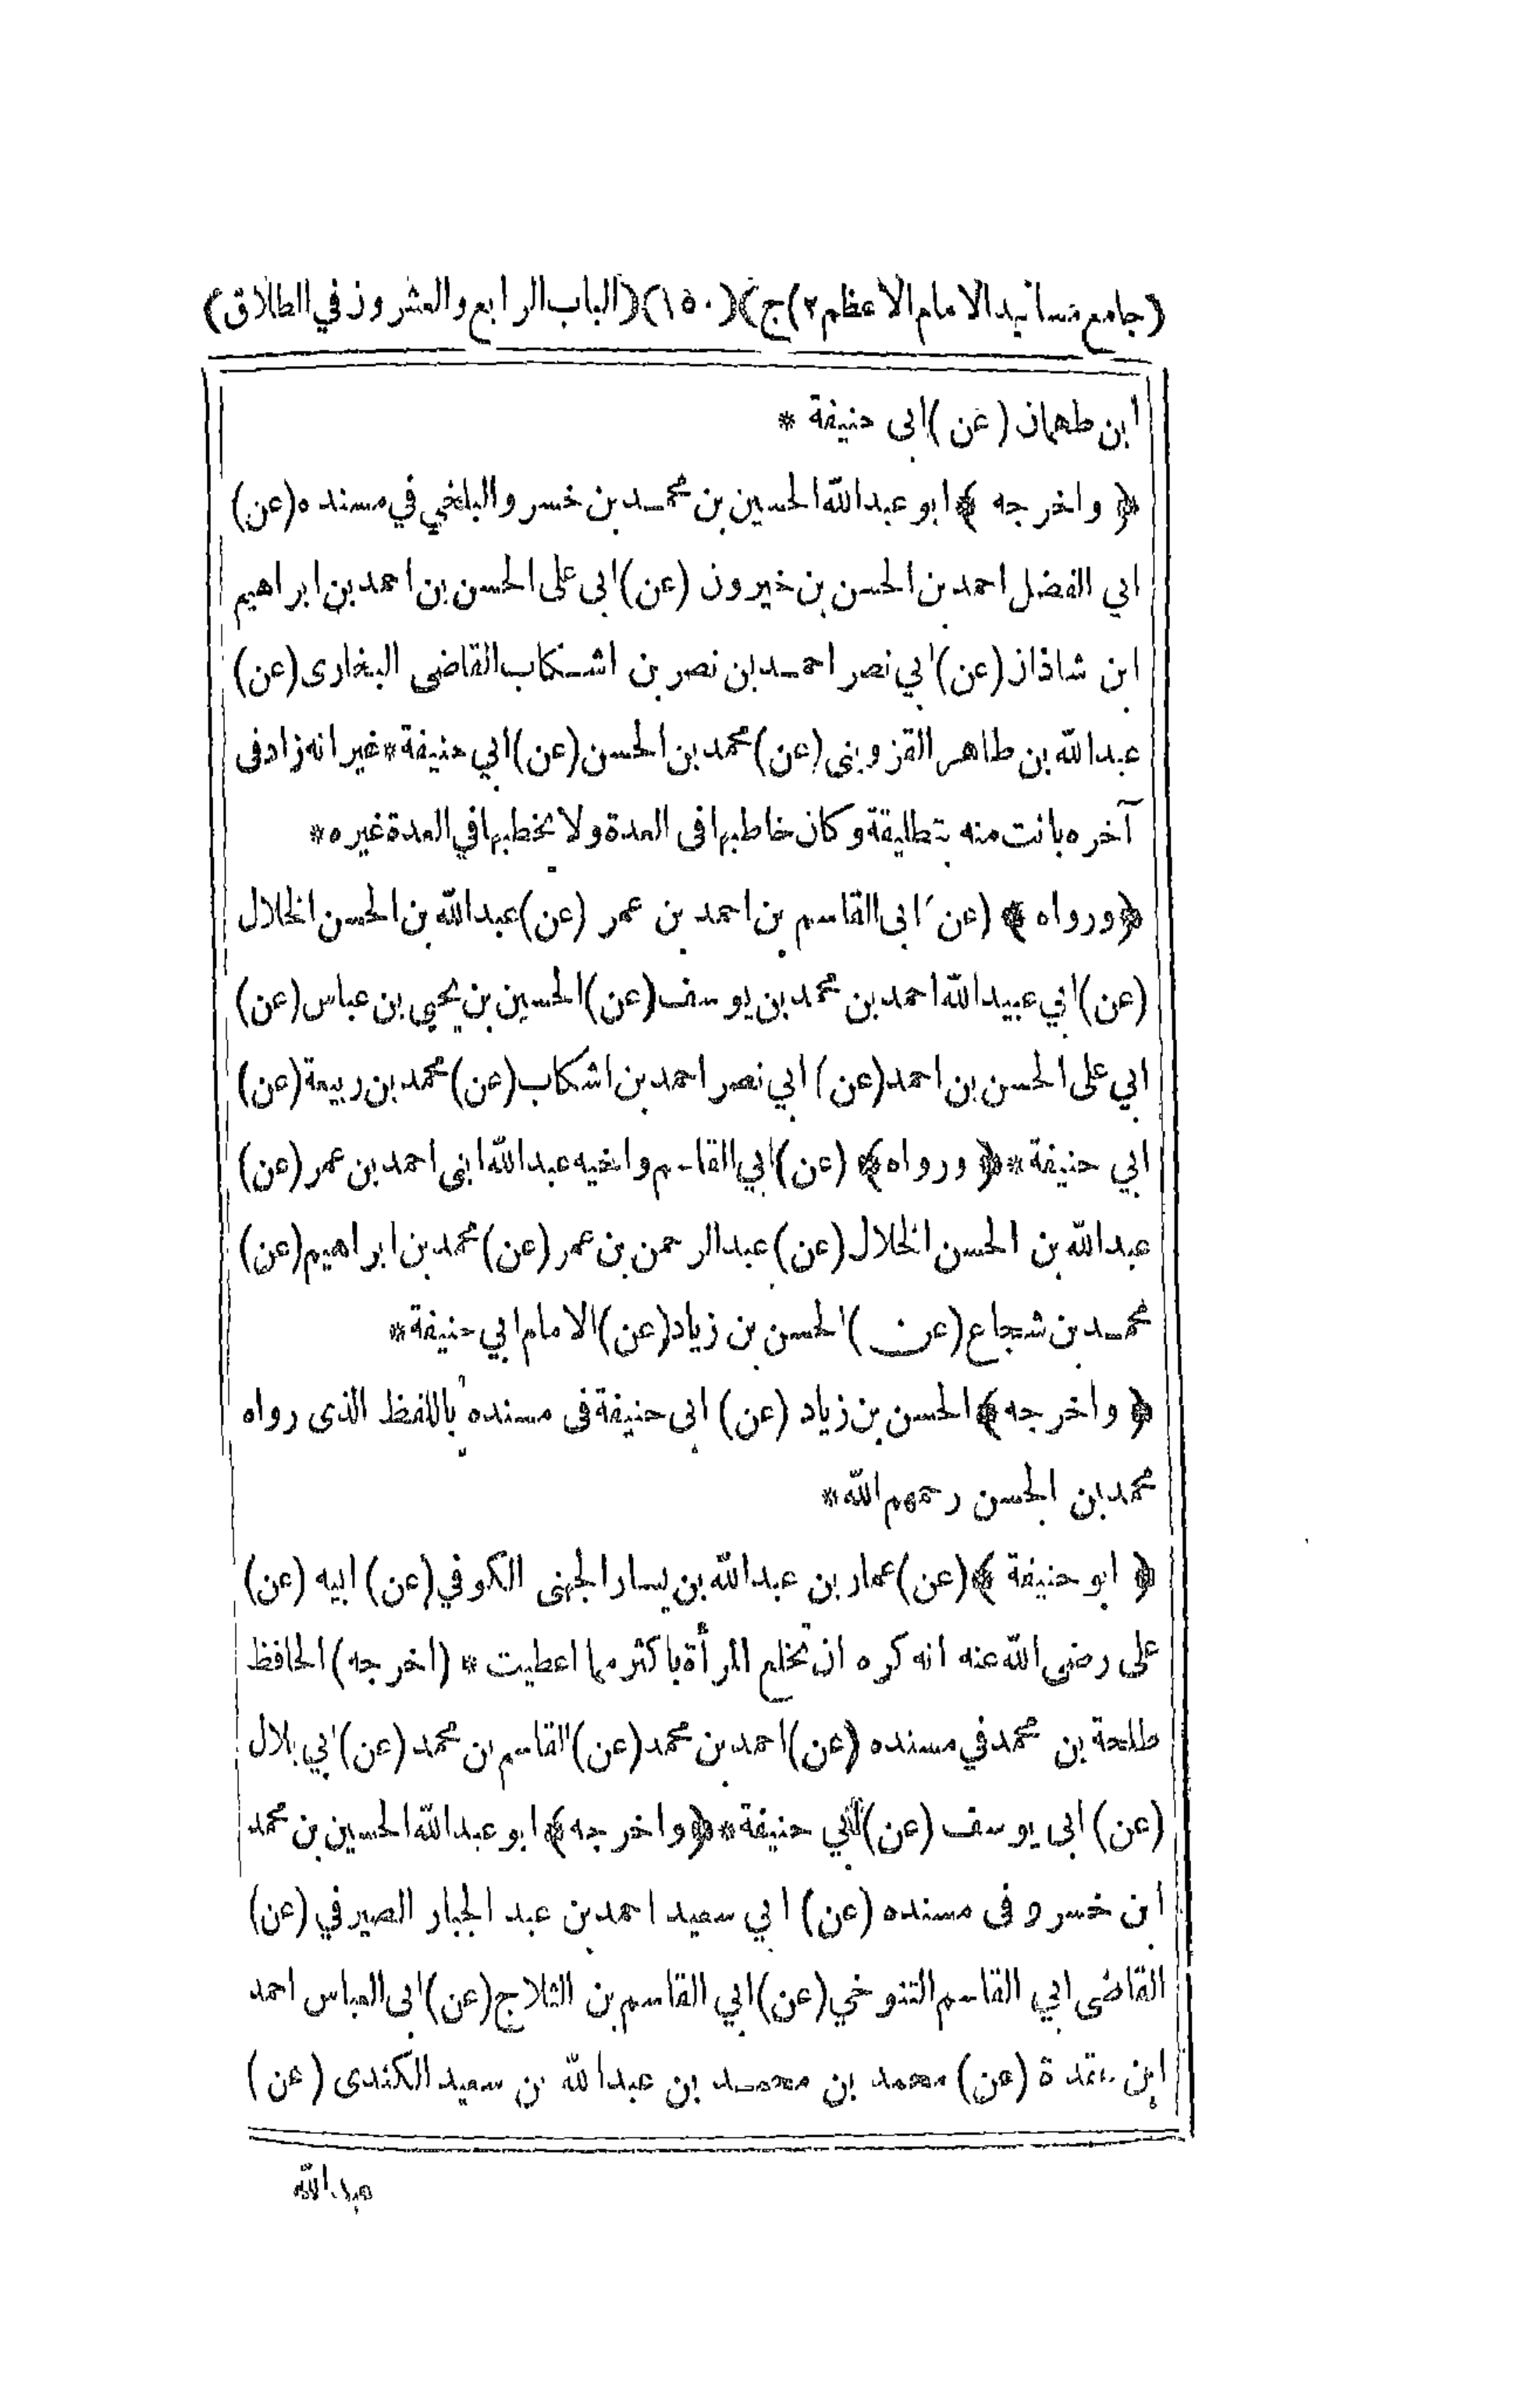 (جامع مسانيد الامام الاعظم٢)ج)(١٥٠)(الباب الرابع والعشرون في الطلاق)
ابن طهمان (عن) ابى حنيفة *
﴿ واخرجه ﴾ ابو عبدالله الحسين بن محمد بن خسرو البلخي في مسنده (عن)
ابي الفضل احمد بن الحسن بن خيرون (عن) ابى على الحسن بن احمد بن ابراهيم
ابن شاذان (عن) ابي نصر احمد بن نصر بن اشكاب القاضى البخارى (عن)
عبدالله بن طاهر القزوينى (عن) محمد بن الحسن (عن) ابي حنيفة * غير انه زاد فى
آخره بانت منه بتطليقة وكان خاطبها فى العدة ولا يخطبها في العدة غيره *
﴿ ورواه ﴾ (عن ابى القاسم بن احمد بن عمر (عن) عبدالله بن الحسن الخلال
(عن) ابي عبيدالله احمد بن محمد بن يوسف (عن) الحسين بن يحيى بن عباس (عن)
ابي على الحسن بن احمد (عن) ابي نصر احمد بن اشكاب (عن) محمد بن ربيعة (عن)
ابي حنيفة * ﴿ ورواه ﴾ (عن) ابي القاسم واخيه عبدالله ابنى احمد بن عمر (عن)
عبدالله بن الحسن الخلال (عن) عبدالرحمن بن عمر (عن) محمد بن ابراهيم (عن)
محمد بن شجاع (عن) الحسن بن زياد (عن) الامام ابي حنيفة *
﴿ واخرجه ﴾ الحسن بن زياد (عن) ابى حنيفة فى مسنده باللفظ الذى رواه
محمد بن الحسن رحمهم الله *
﴿ ابو حنيفة ﴾ (عن) عمار بن عبدالله بن يسار الجهنى الكوفي (عن) ابيه (عن)
على رضى الله عنه انه كره ان تخلع المرأة باكثر مما اعطيت * (اخرجه) الحافظ
طلحة بن محمد في مسنده (عن) احمد بن محمد (عن) القاسم بن محمد (عن) ابي بلال
(عن) ابى يوسف (عن) ابي حنيفة * ﴿ واخرجه ﴾ ابو عبدالله الحسين بن محمد
ابن خسرو فى مسنده (عن) ابي سعيد احمد بن عبد الجبار الصيرفي (عن)
القاضى ابي القاسم التنوخي (عن) ابي القاسم بن الثلاج (عن) ابى العباس احمد
ابن عقدة (عن) محمد بن محمد بن عبدالله بن سعيد الكندى (عن)
عبدالله